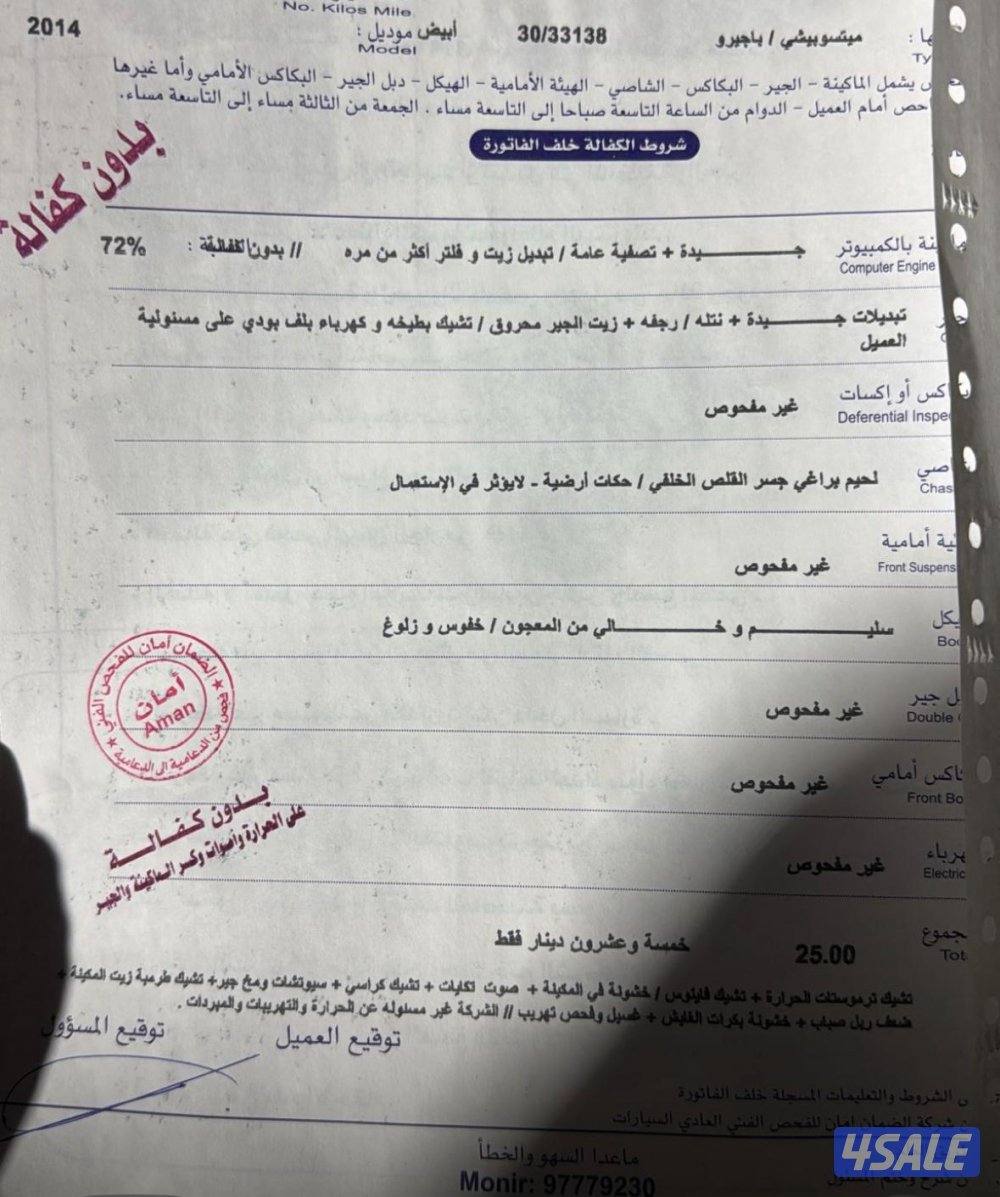 No. Kilos Mile
ميتسوبيشي / باجيرو 30/33138 أبيض موديل : 2014
Model
يشمل الماكينة - الجير - البكاكس - الشاصي - الهيئة الأمامية - الهيكل - دبل الجير - البكاكس الأمامي وأما غيرها
أمام العميل - الدوام من الساعة التاسعة صباحا إلى التاسعة مساء . الجمعة من الثالثة مساء إلى التاسعة مساء.
شروط الكفالة خلف الفاتورة
بدون كفالة
بالكمبيوتر جـــــيدة + تصفية عامة / تبديل زيت و فلتر أكثر من مره // بدون : 72%
Computer Engine
تبديلات جـــــيدة + نتله / رجفه + زيت الجير محروق / تشيك بطيخه و كهرباء بلف بودي على مسئولية
العميل
أو إكسات غير مفحوص
Deferential Inspe
لحيم براغي جسر القلص الخلفي / حكات أرضية - لايؤثر في الإستعمال
Chas
أمامية غير مفحوص
Front Suspens
سليـــــم و خـــــالي من المعجون / خفوس و زلوغ
Bod
جير غير مفحوص
Double
أمامي غير مفحوص
Front Bo
غير مفحوص
Electric
الضمان أمان للفحص الفني
أمان
Aman
بدون كفالة
على الحرارة وأصوات وكسر الماكينة والجير
25.00 خمسة وعشرون دينار فقط
Tot
تشيك ترموستات الحرارة + تشيك فاينوس / خشونة في المكينة + صوت تكايات + تشيك كراسي + سيوتشات ومخ جير + تشيك طرمبة زيت المكينة +
ضعف ريل صباب + خشونة بكرات القايش + غسيل وفحص تهريب // الشركة غير مسئولة عن الحرارة والتهريبات والمبردات .
توقيع العميل توقيع المسؤول
الشروط والتعليمات المسجلة خلف الفاتورة
شركة الضمان امان للفحص الفني العادي السيارات
ماعدا السهو والخطأ
Monir: 97779230
4SALE